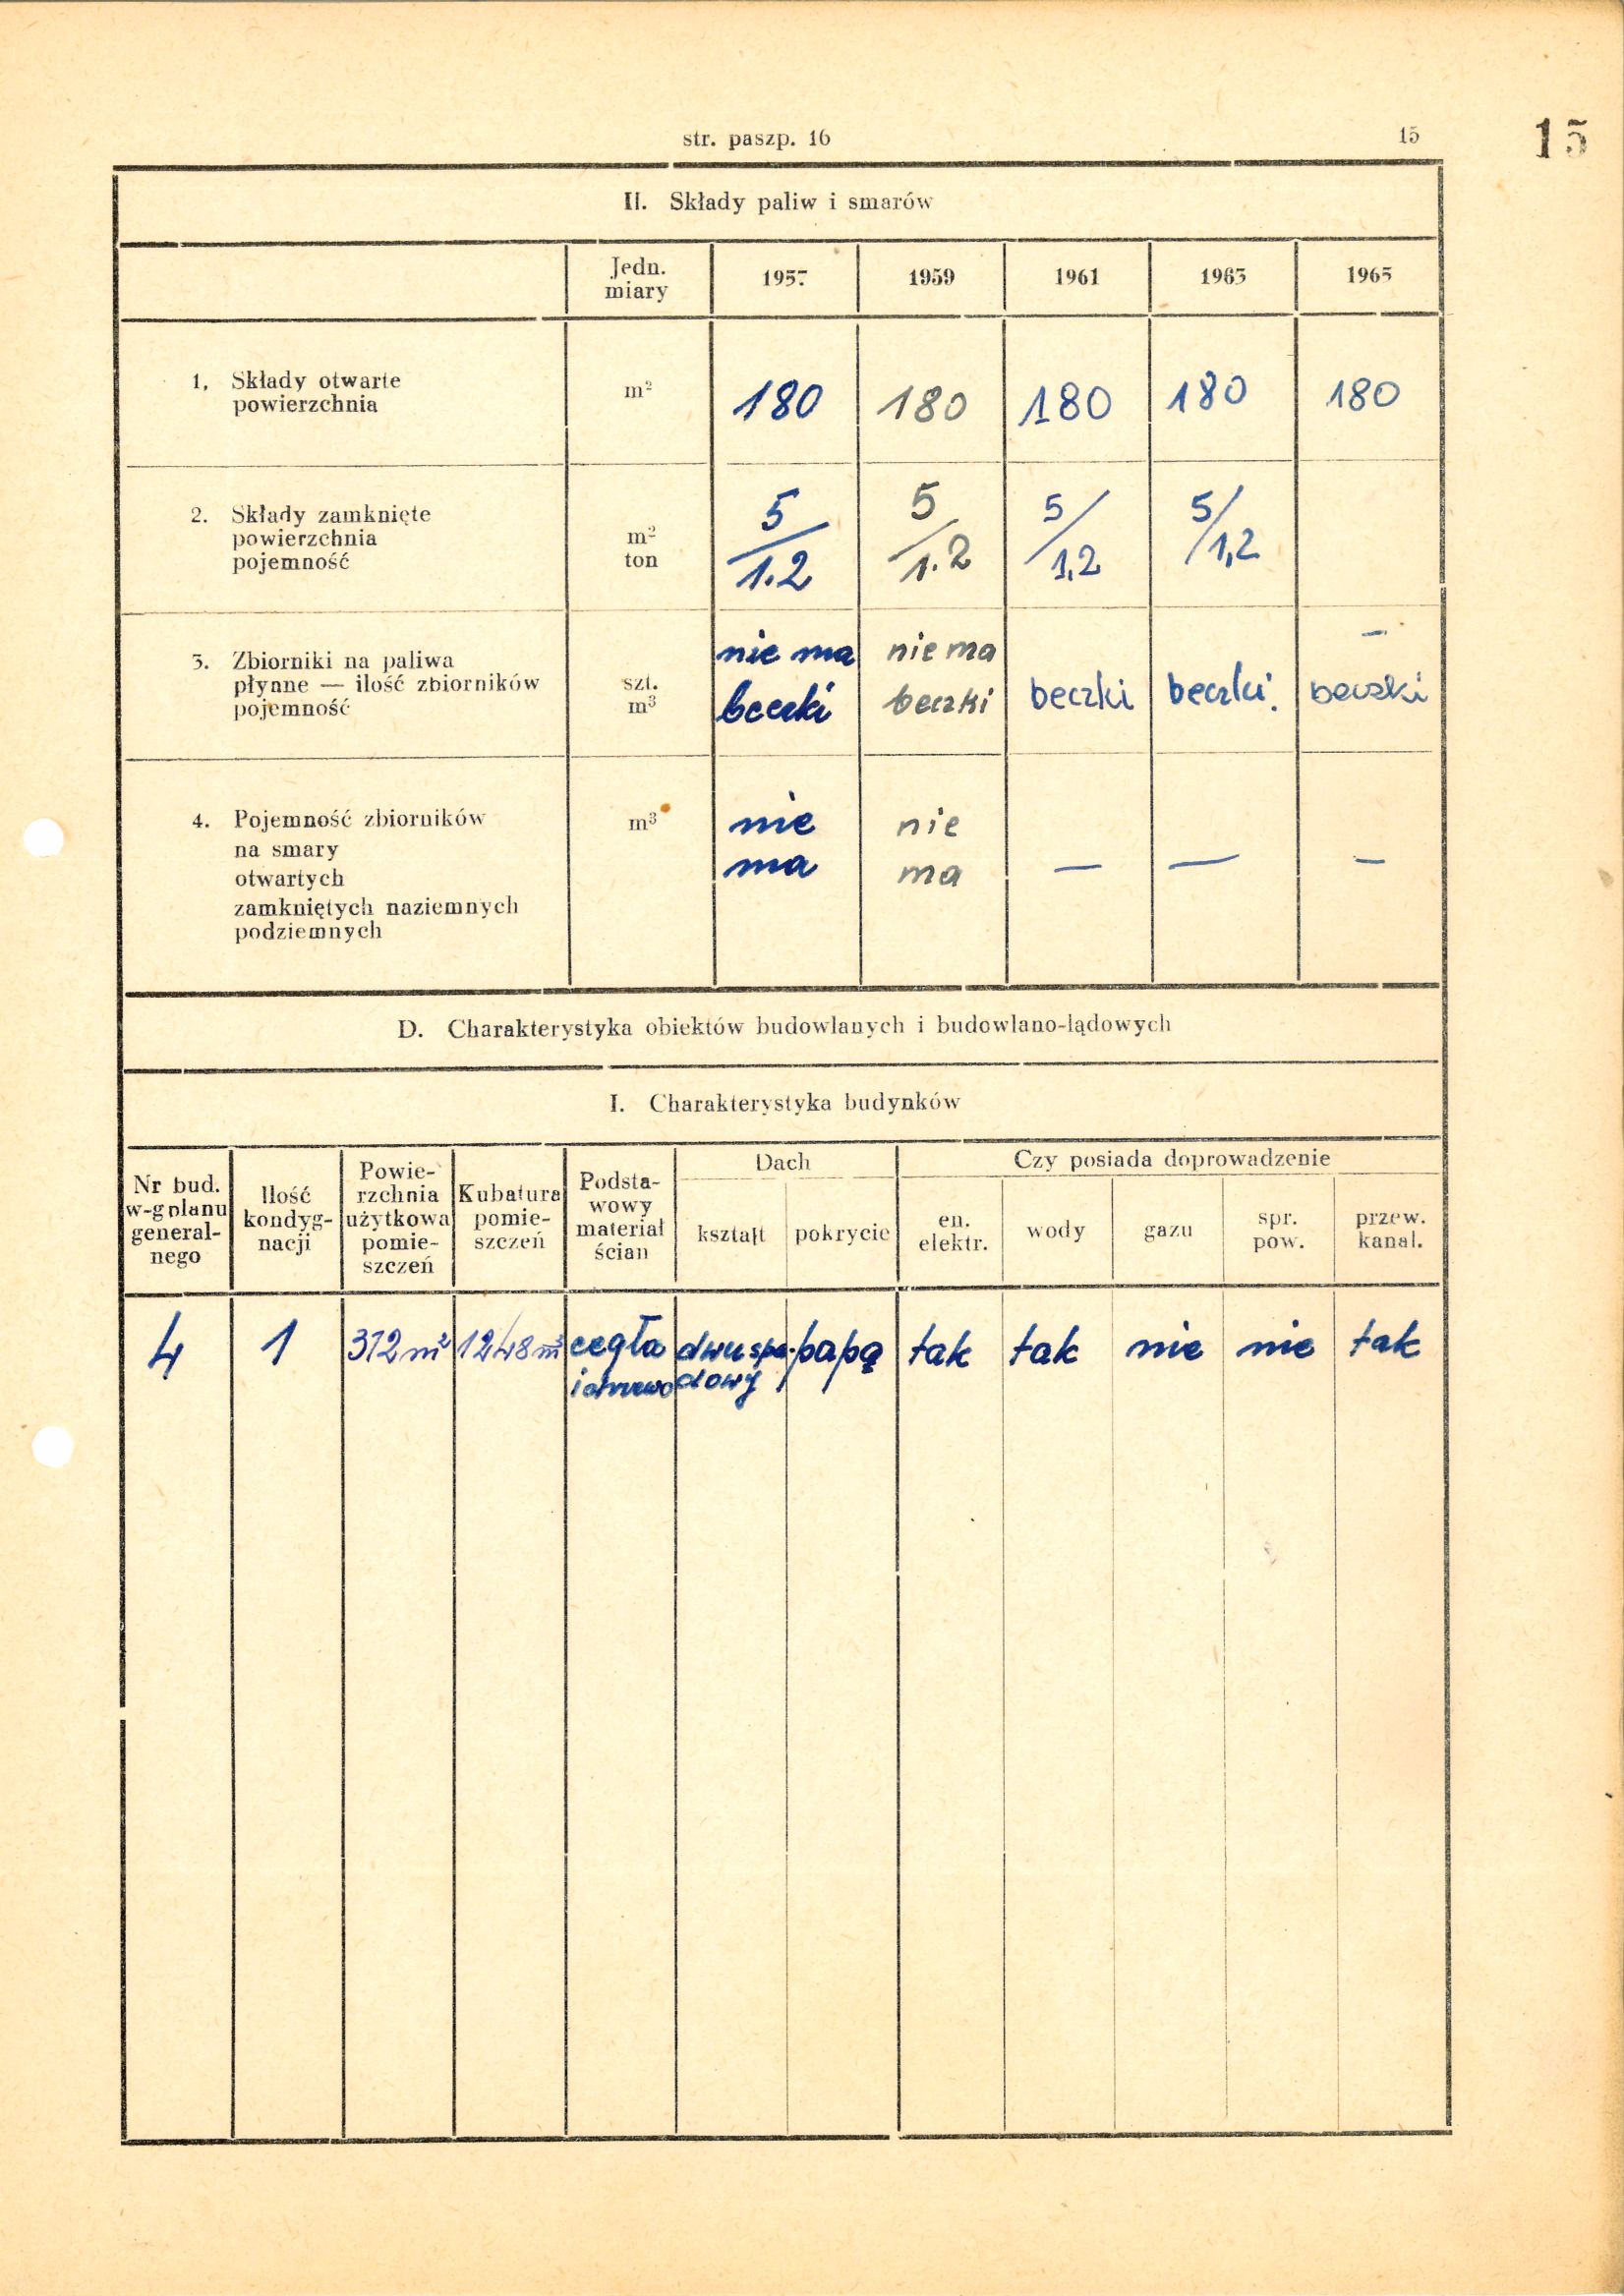 str. paszp. 16
15
15
II. Składy paliw i smarów
Jedn. miary 1957 1959 1961 1963 1965
1. Składy otwarte
powierzchnia
m² 180 180 180 180 180
2. Składy zamknięte
powierzchnia
pojemność
m²
ton
5/1.2 5/1.2 5/1,2 5/1,2
3. Zbiorniki na paliwa
płynne — ilość zbiorników
pojemność
szt.
m³
nie ma nie ma –
beczki beczki beczki beczki. beczki
4. Pojemność zbiorników
na smary
otwartych
zamkniętych naziemnych
podziemnych
m³
nie nie
ma ma — — —
D. Charakterystyka obiektów budowlanych i budowlano-lądowych
I. Charakterystyka budynków
Nr bud.
w-g planu
general-
nego
Ilość
kondyg-
nacji
Powie-
rzchnia
użytkowa
pomie-
szczeń
Kubatura
pomie-
szczeń
Podsta-
wowy
materiał
ścian
Dach
kształt pokrycie
Czy posiada doprowadzenie
en.
elektr.
wody
gazu
spr.
pow.
przew.
kanal.
4 1 312 m² 1248 m³ cegła dwuspa- papą tak tak nie nie tak
i drzewo dowy